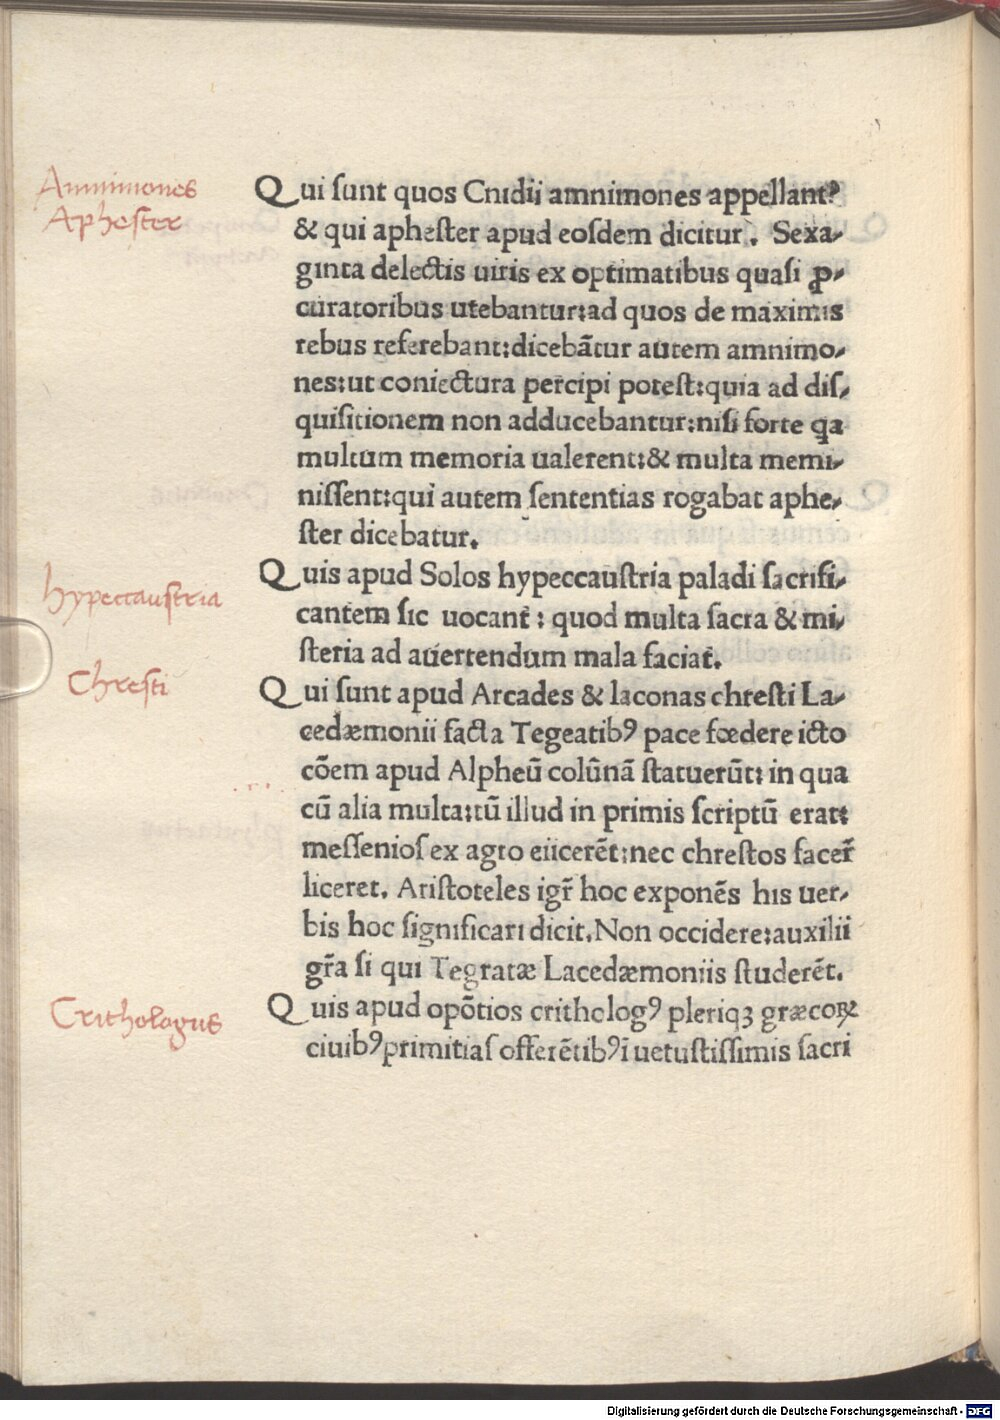 Amnimones
Aphester
Qui sunt quos Cnidii amnimones appellant?
& qui aphester apud eosdem dicitur. Sexa-
ginta delectis uiris ex optimatibus quasi ꝓ-
curatoribus utebantur:ad quos de maximis
rebus referebant:dicebãtur autem amnimo-
nes:ut coniectura percipi potest:quia ad dis-
quisitionem non adducebantur:nisi forte qa
multum memoria ualerent:& multa memi-
nissent:qui autem sententias rogabat aphe-
ster dicebatur.
hypeccaustria
Quis apud Solos hypeccaustria paladi sacrifi-
cantem sic uocant : quod multa sacra & mi-
steria ad auertendum mala faciat.
Chresti
Qui sunt apud Arcades & laconas chresti La-
cedæmonii facta Tegeatibꝰ pace fœdere icto
cõem apud Alpheũ colũnã statuerũt: in qua
cũ alia multa:tũ illud in primis scriptũ erat:
messenios ex agro eiicerẽt:nec chrestos facer̃
liceret. Aristoteles igr̃ hoc exponẽs his uer-
bis hoc significari dicit. Non occidere:auxilii
gr̃a si qui Tegratæ Lacedæmoniis studerẽt.
Crithologus
Quis apud opõtios crithologꝰ pleriqꝫ græcoꝝ
ciuibꝰ primitias offerẽtibꝰ ĩ uetustissimis sacri
Digitalisierung gefördert durch die Deutsche Forschungsgemeinschaft - DFG